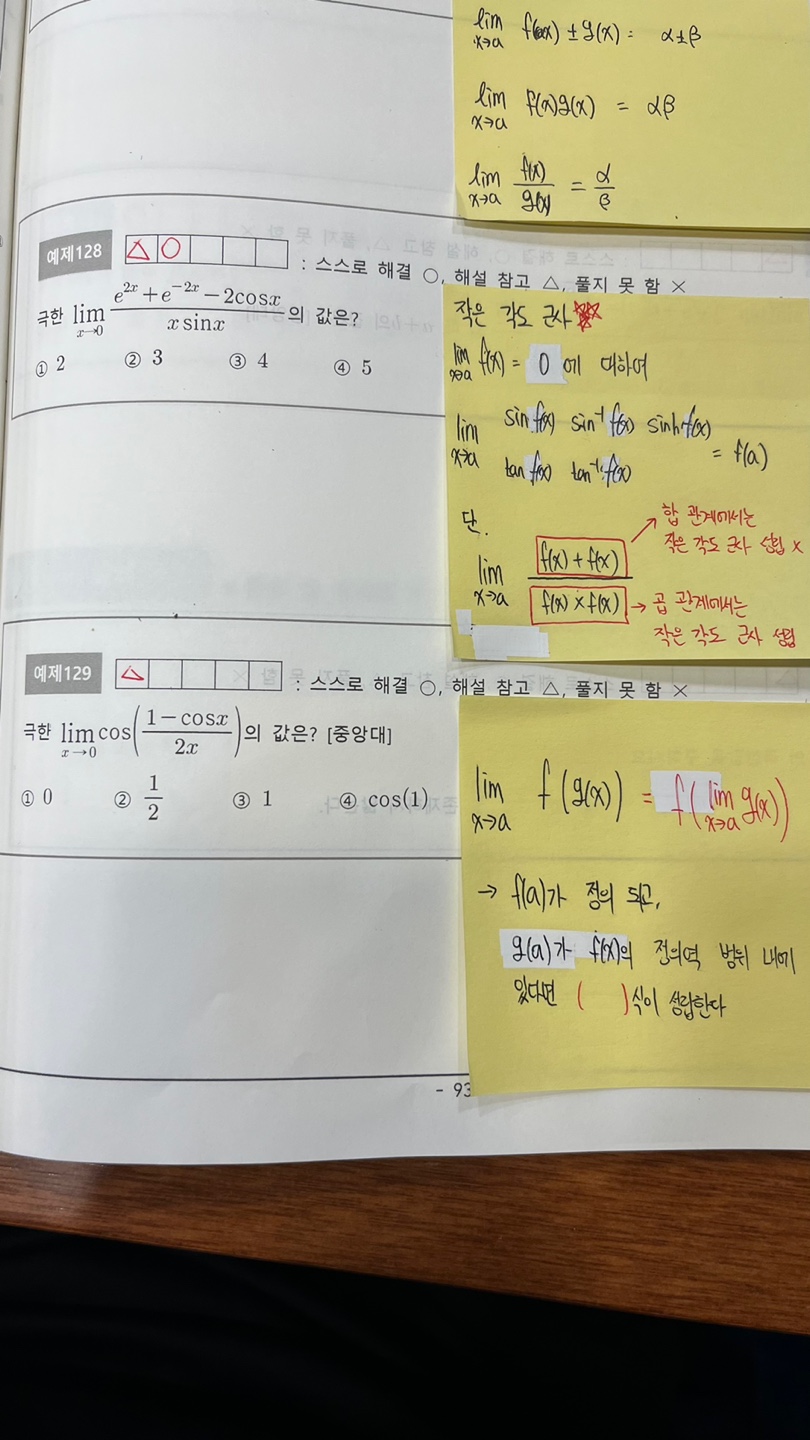 lim x→a f(x) ± g(x) = α±β
lim x→a f(x)g(x) = αβ
lim x→a f(x)/g(x) = α/β
예제128 △ ○ : 스스로 해결 ○, 해설 참고 △, 풀지 못 함 ×
극한 lim x→0 (e^{2x}+e^{-2x}-2cosx)/(x sinx) 의 값은?
① 2 ② 3 ③ 4 ④ 5
작은 각도 근사
lim x→a f(x) = 0 에 대하여
lim x→a sin f(x) sin⁻¹ f(x) sinh f(x)
tan f(x) tan⁻¹ f(x) = f(a)
단.
lim x→a (f(x) + f(x))/(f(x) × f(x))
→ 합 관계에서는
작은 각도 근사 성립 ×
→ 곱 관계에서는
작은 각도 근사 성립
예제129 △ : 스스로 해결 ○, 해설 참고 △, 풀지 못 함 ×
극한 lim x→0 cos((1-cosx)/2x)의 값은? [중앙대]
① 0 ② 1/2 ③ 1 ④ cos(1)
lim x→a f(g(x)) = f(lim x→a g(x))
→ f(a)가 정의 되고,
g(a)가 f(x)의 정의역 범위 내에
있다면 ( )식이 성립한다
- 93